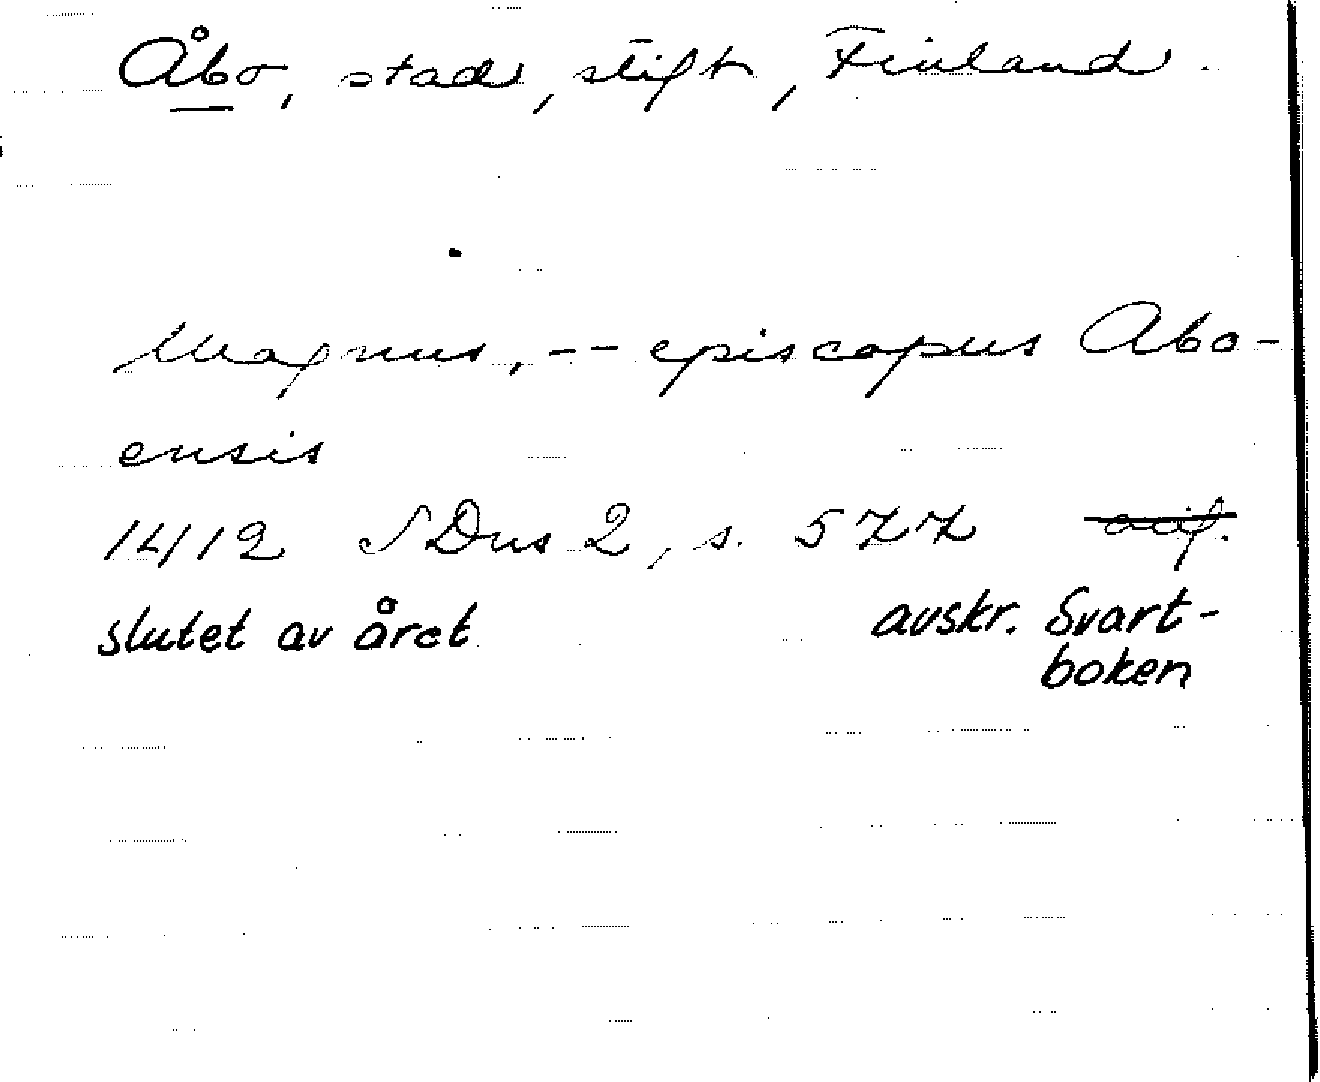 Åbo, stad, stift, Finland.
Magnus, -- episcopus Abo-
ensis
1412 SDns 2, s. 577 orig.
slutet av året avskr. Svart-
boken